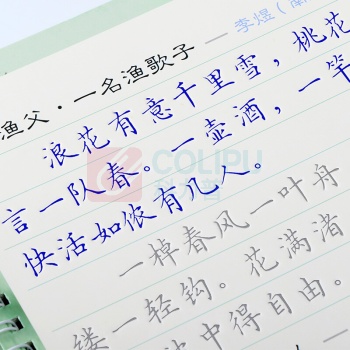 渔父·一名渔歌子 — 李煜(南
浪花有意千里雪,桃花
言一队春。一壶酒,一竿
快活如侬有几人。
一棹春风一叶舟
缕一轻钩。花满渚
中得自由。
COLIPU